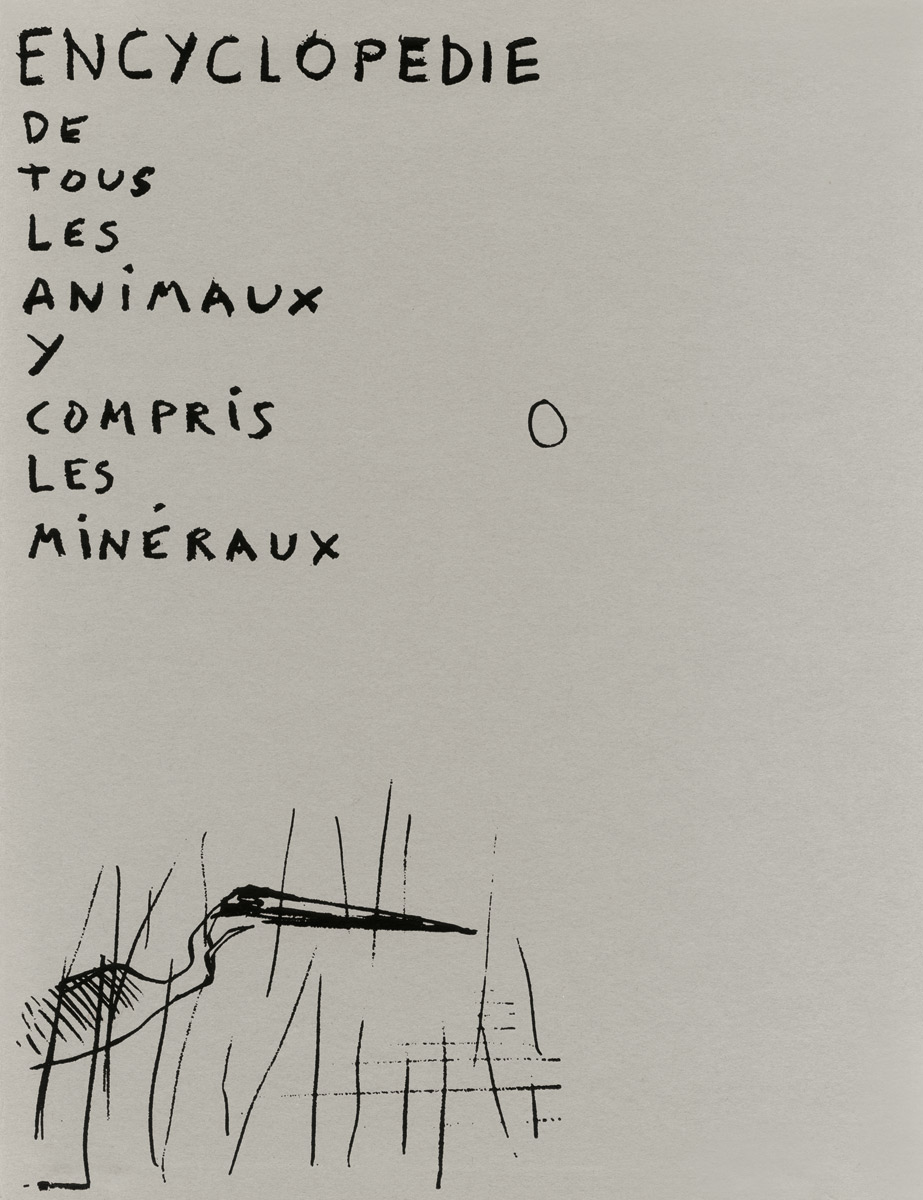 ENCYCLOPEDIE
DE
TOUS
LES
ANIMAUX
Y
COMPRIS
LES
MINÉRAUX